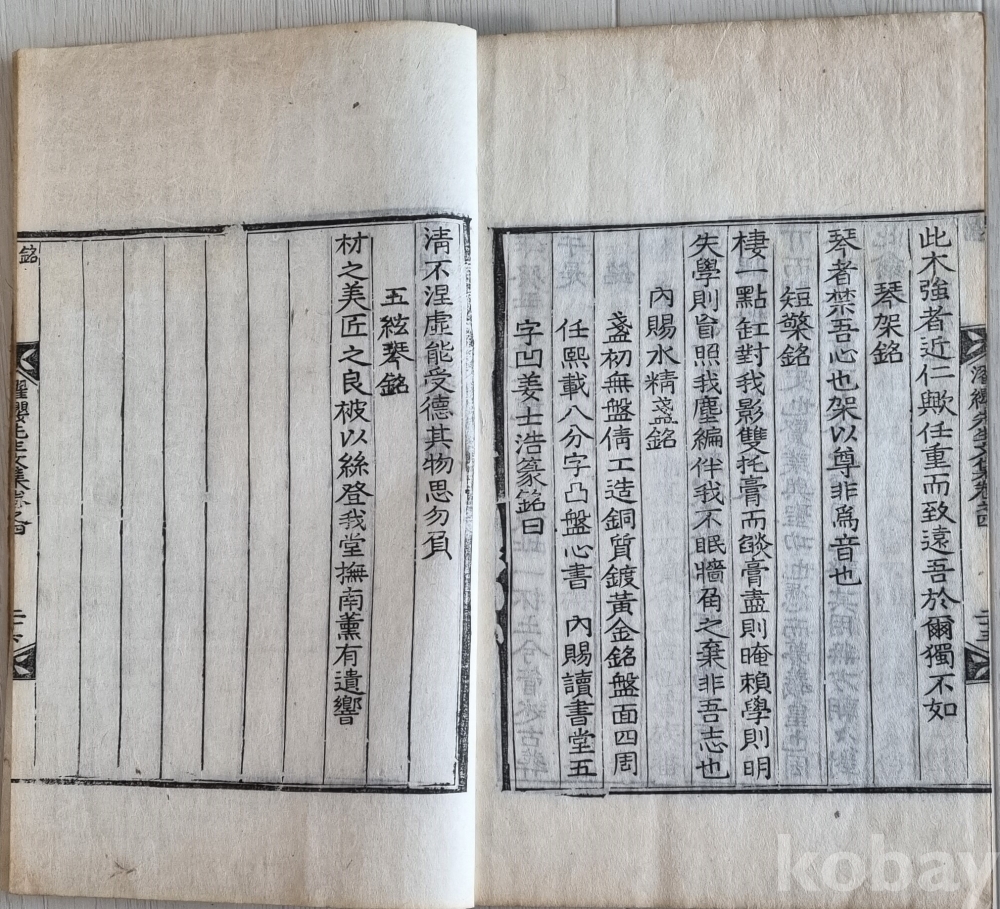 此木強者近仁歟任重而致遠吾於爾獨不如
琴架銘
琴者禁吾心也架以尊非爲音也
短檠銘
棲一點缸對我影雙托膏而燄膏盡則晻賴學則明
失學則盲照我塵編伴我不眠牆角之棄非吾志也
內賜水精盞銘
盞初無盤倩工造銅質鍍黃金銘盤面四周
任熙載八分字凸盤心書 內賜讀書堂五
字凹姜士浩篆銘曰
清不涅虛能受德其物思勿負
五絃琴銘
材之美匠之良被以絲登我堂撫南薰有遺響
銘
濯纓先生文集卷之四
kobay